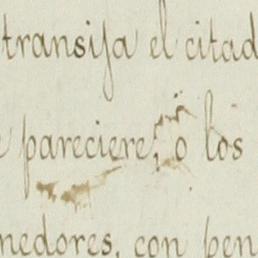 transija el citad
pareciere, ö los
nedores, con pen